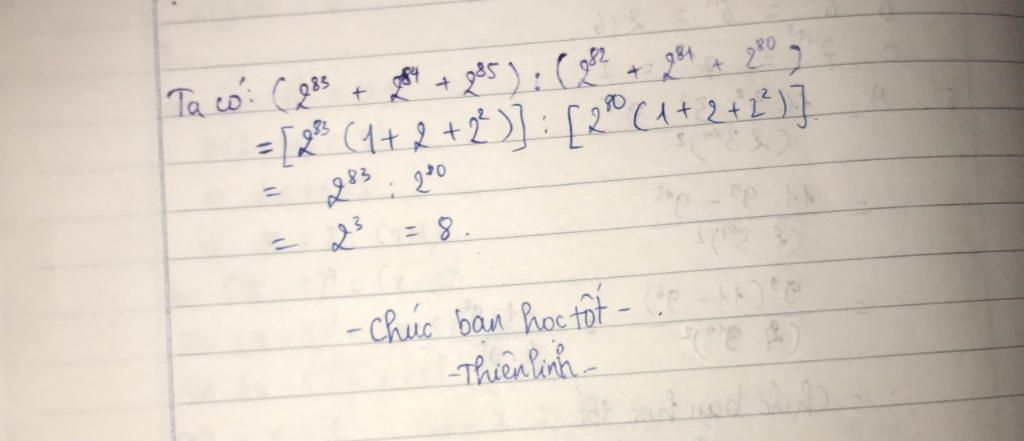 Ta có: (2⁸³ + 2⁸⁴ + 2⁸⁵) : (2⁸² + 2⁸¹ + 2⁸⁰)
= [2⁸³ (1 + 2 + 2²)] : [2⁸⁰ (1 + 2 + 2²)].
= 2⁸³ : 2⁸⁰
= 2³ = 8.
- Chúc bạn học tốt - .
- Thiên Linh -